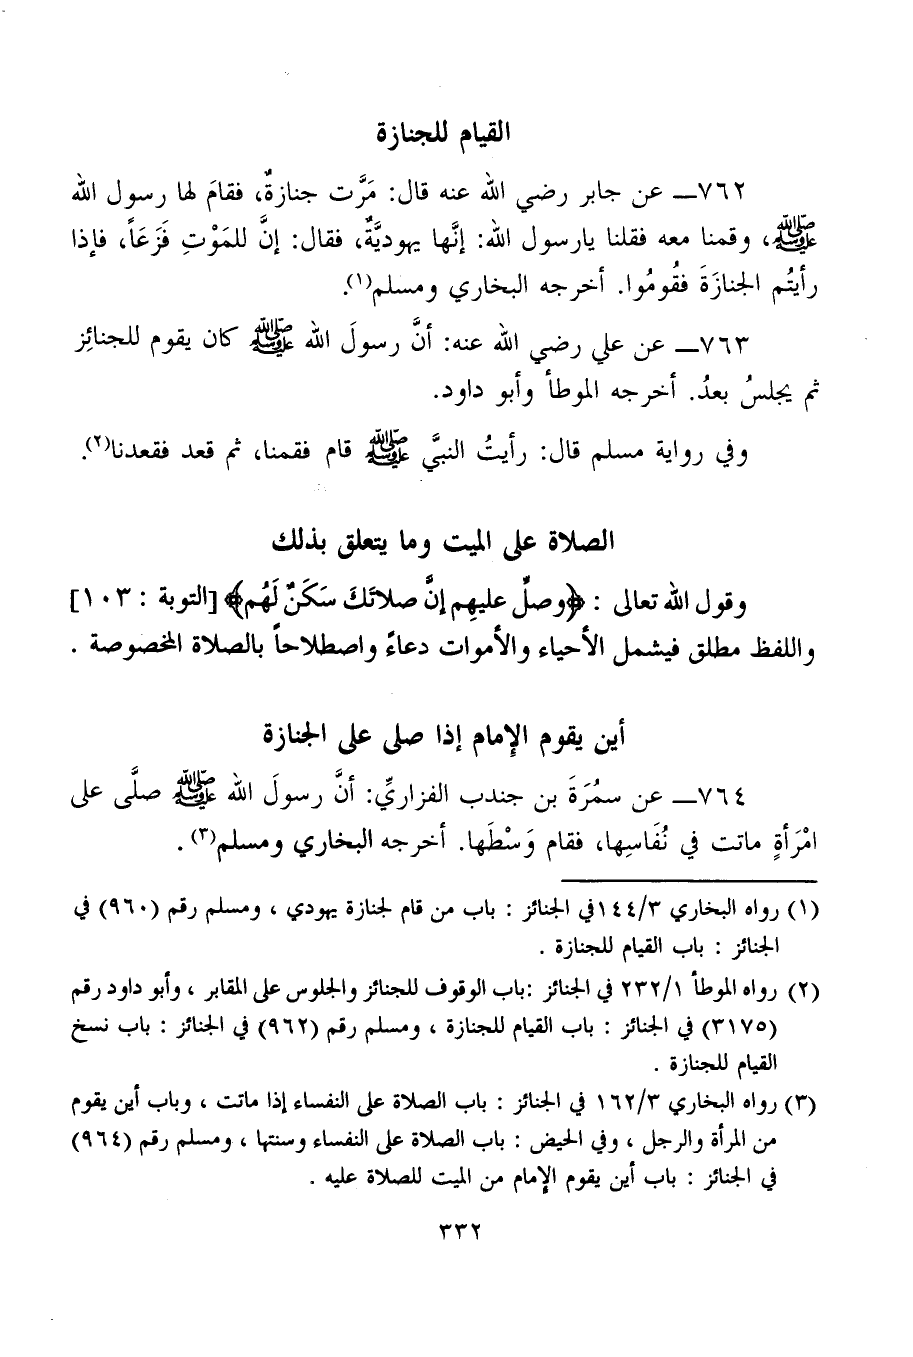 القيام للجنازة
٧٦٢ــ عن جابر رضي الله عنه قال: مَرَّت جنازةٌ، فقامَ لها رسول الله
ﷺ، وقمنا معه فقلنا يارسول الله: إنَّها يهوديَّةٌ، فقال: إنَّ للمَوْتِ فَزَعَاً، فإذا
رأيتُم الجنازَةَ فقُومُوا. أخرجه البخاري ومسلم(١).
٧٦٣ــ عن علي رضي الله عنه: أنَّ رسولَ الله ﷺ كان يقوم للجنائِز
ثم يجلسُ بعدُ. أخرجه الموطأ وأبو داود.
وفي رواية مسلم قال: رأيتُ النبيَّ ﷺ قام فقمنا، ثم قعد فقعدنا(٢).
الصلاة على الميت وما يتعلق بذلك
وقول الله تعالى : ﴿وصلِّ عليهِم إنَّ صلاتَكَ سَكَنٌ لَهُم﴾ [التوبة : ١٠٣]
واللفظ مطلق فيشمل الأحياء والأموات دعاءً واصطلاحاً بالصلاة المخصوصة .
أين يقوم الإمام إذا صلى على الجنازة
٧٦٤ــ عن سمُرَةَ بن جندب الفزاريِّ: أنَّ رسولَ الله ﷺ صلَّى على
امْرَأةٍ ماتت في نُفَاسِها، فقام وَسْطَها. أخرجه البخاري ومسلم(٣) .
(١) رواه البخاري ١٤٤/٣في الجنائز : باب من قام لجنازة يهودي ، ومسلم رقم (٩٦٠) في
الجنائز : باب القيام للجنازة .
(٢) رواه الموطأ ٢٣٢/١ في الجنائز :باب الوقوف للجنائز والجلوس على المقابر ، وأبو داود رقم
(٣١٧٥) في الجنائز : باب القيام للجنازة ، ومسلم رقم (٩٦٢) في الجنائز : باب نسخ
القيام للجنازة .
(٣) رواه البخاري ١٦٢/٣ في الجنائز : باب الصلاة على النفساء إذا ماتت ، وباب أين يقوم
من المرأة والرجل ، وفي الحيض : باب الصلاة على النفساء وسنتها ، ومسلم رقم (٩٦٤)
في الجنائز : باب أين يقوم الإمام من الميت للصلاة عليه .
٣٣٢